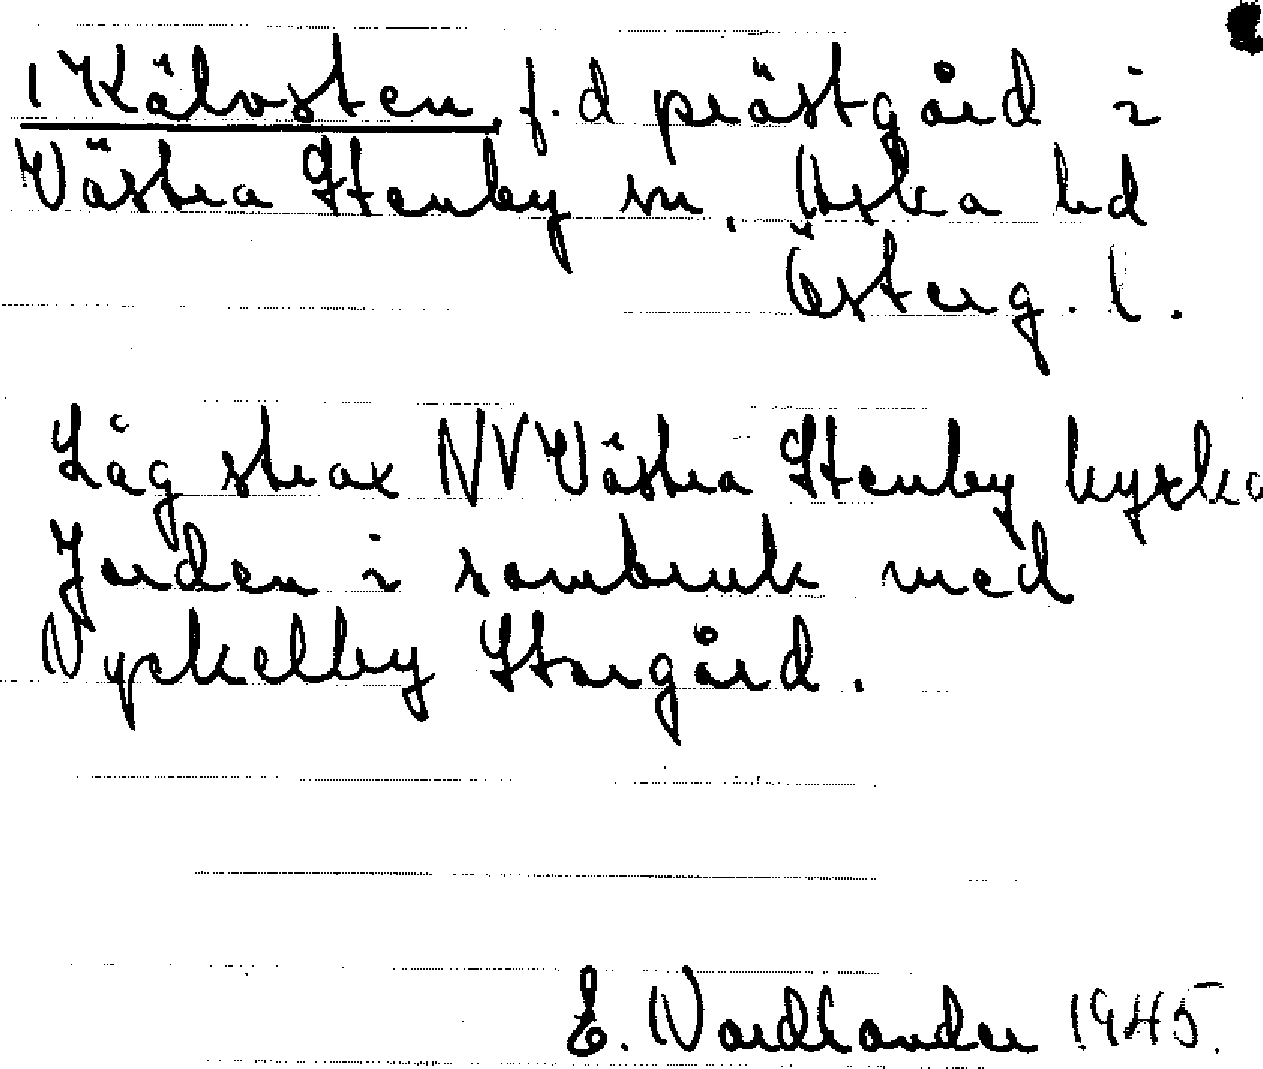 1 Kälvsten, f.d prästgård i
Västra Stenby sn. Aska hd
Österg. l.
Låg strax NV Västra Stenby kyrka
Jorden i sambruk med
Nyckelby Storgård.
E. Nordlander 1945.